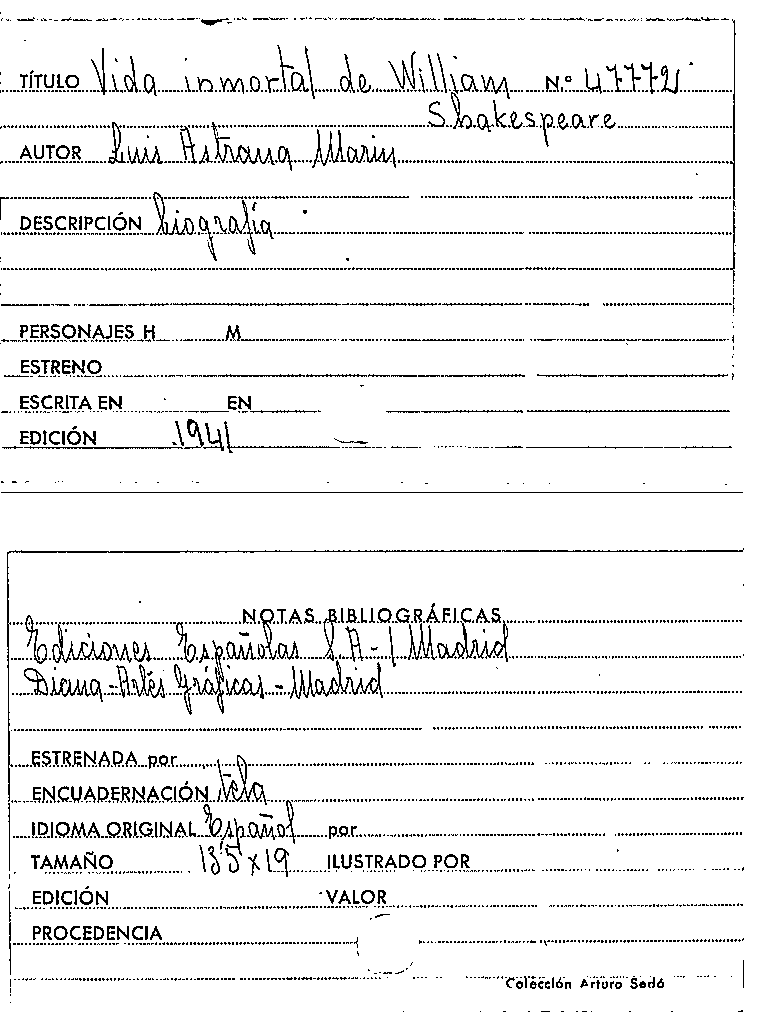 TÍTULO Vida inmortal de William Nº 47772
Shakespeare
AUTOR Luis Astrana Marin
DESCRIPCIÓN biografía
PERSONAJES H M
ESTRENO
ESCRITA EN EN
EDICIÓN 1941
NOTAS BIBLIOGRÁFICAS
Ediciones Españolas S.A - Madrid
Diana-Artes Gráficas - Madrid
ESTRENADA por
ENCUADERNACIÓN tela
IDIOMA ORIGINAL Español por
TAMAÑO 13'5 x 19 ILUSTRADO POR
EDICIÓN VALOR
PROCEDENCIA
Colección Arturo Sedó